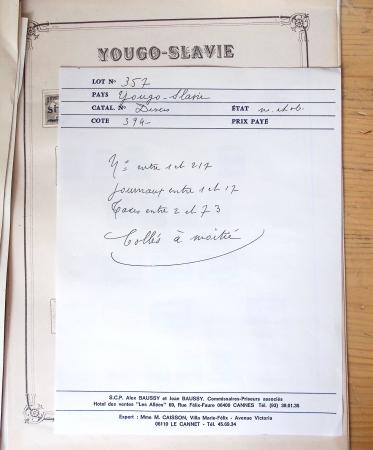 YOUGO-SLAVIE
LOT N° 357
PAYS Yougo-Slavie
CATAL. N° Divers ÉTAT n. et ob.
COTE 394- PRIX PAYÉ
N° entre 1 et 217
Journaux entre 1 et 17
Taxes entre 2 et 73
Collés à moitié
S.C.P. Alex BAUSSY et Jean BAUSSY, Commissaires-Priseurs associés
Hotel des ventes "Les Allées" 69, Rue Félix-Faure 06400 CANNES Tél. (93) 38.01.35
Expert : Mme M. CAISSON, Villa Marie-Félix - Avenue Victoria
06110 LE CANNET - Tél. 45.69.34